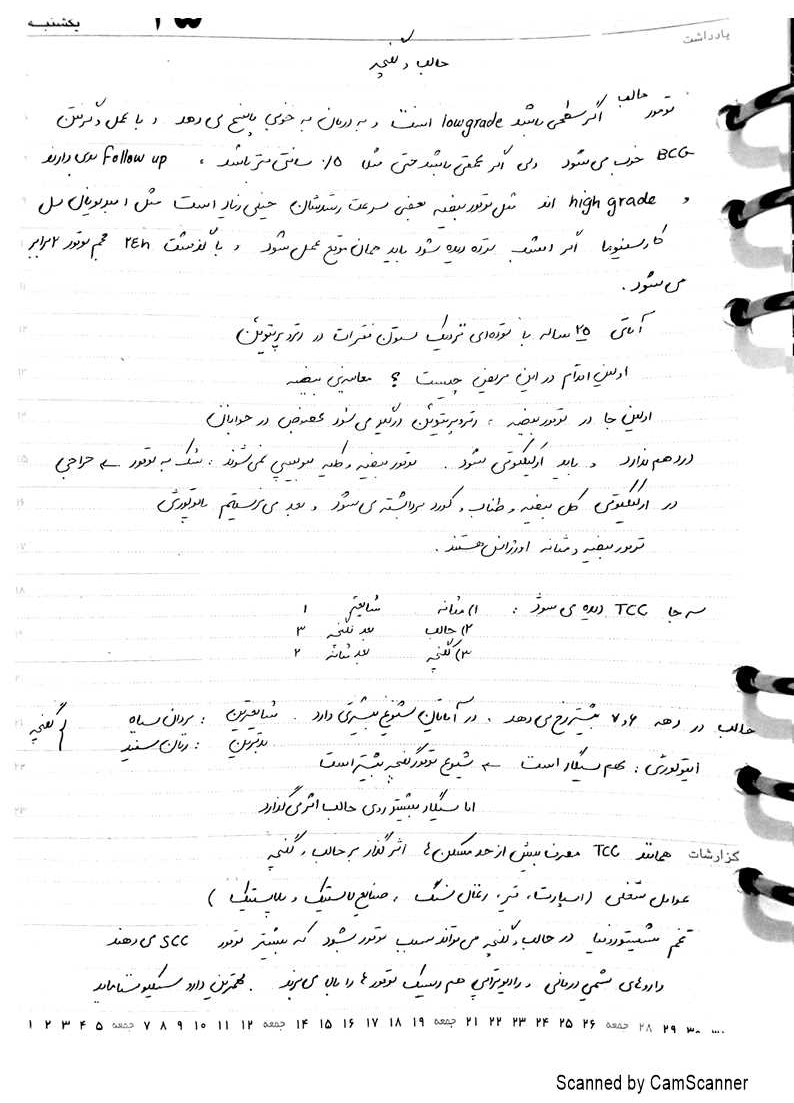 یکشنبه ۲۵
یادداشت
حالب و لگنچه
تومور حالب اگر سطحی باشد low grade است و به درمان به خوبی پاسخ می دهد و با عمل و گرفتن
BCG خوب می شود ولی اگر عمقی باشد حتی مثلا ۰/۵ سانتی متر باشد ، follow up بدی دارند
و high grade اند مثل تومور بیضه یعنی سرعت رشدشان خیلی زیاد است مثل امبریونال سل
کارسینوما اگر امشب توده دیده شود باید همان موقع عمل شود و با گذشت 24h حجم تومور ۲ برابر
می شود .
آقای ۲۵ ساله با توده‌ای نزدیک ستون فقرات در رتروپریتوئن
اولین اقدام در این مریض چیست ؟ معاینه‌ی بیضه
اولین جا در تومور بیضه ، رتروپریتوئن درگیر می شود بخصوص در جوانان
درد هم ندارد و باید ارکیکتومی شود . تومور بیضه و کلیه بیوپسی نمی شوند ، شک به تومور ← جراحی
در ارکیکتومی کل بیضه و طناب و کورد برداشته می شود و بعد می فرستیم پاتولوژی
تومور بیضه و مثانه اورژانس هستند .
سه جا TCC دیده می شود :
۱) مثانه شایعتر ۱
۲) حالب بعد لگنچه ۳
۳) لگنچه بعد مثانه ۲
حالب در دهه ۶ و ۷ بیشتر رخ می دهد . در آقایان شیوع بیشتری دارد . شایعترین : مردان سیاه
بدترین : زنان سفید } لگنچه
اتیولوژی : مهم سیگار است ← شیوع تومور لگنچه بیشتر است
اما سیگار بیشتر روی حالب اثر می گذارد
گزارشات
همانند TCC مصرف بیش از حد مسکن ها اثر گذار بر حالب و لگنچه
عوامل شغلی ( آسپارتات ، قیر ، زغال سنگ ، صنایع لاستیک و پلاستیک )
تخم شیستوزومیا در حالب و لگنچه می تواند سبب تومور شود که بیشتر تومور SCC می دهند
داروهای شیمی درمانی و رادیوتراپی هم ریسک تومور ها را بالا می برند . مهمترین دارو سیکلوفسفاماید
۱ ۲ ۳ ۴ ۵ جمعه ۷ ۸ ۹ ۱۰ ۱۱ ۱۲ جمعه ۱۴ ۱۵ ۱۶ ۱۷ ۱۸ ۱۹ جمعه ۲۱ ۲۲ ۲۳ ۲۴ ۲۵ ۲۶ جمعه ۲۸ ۲۹ ۳۰
Scanned by CamScanner